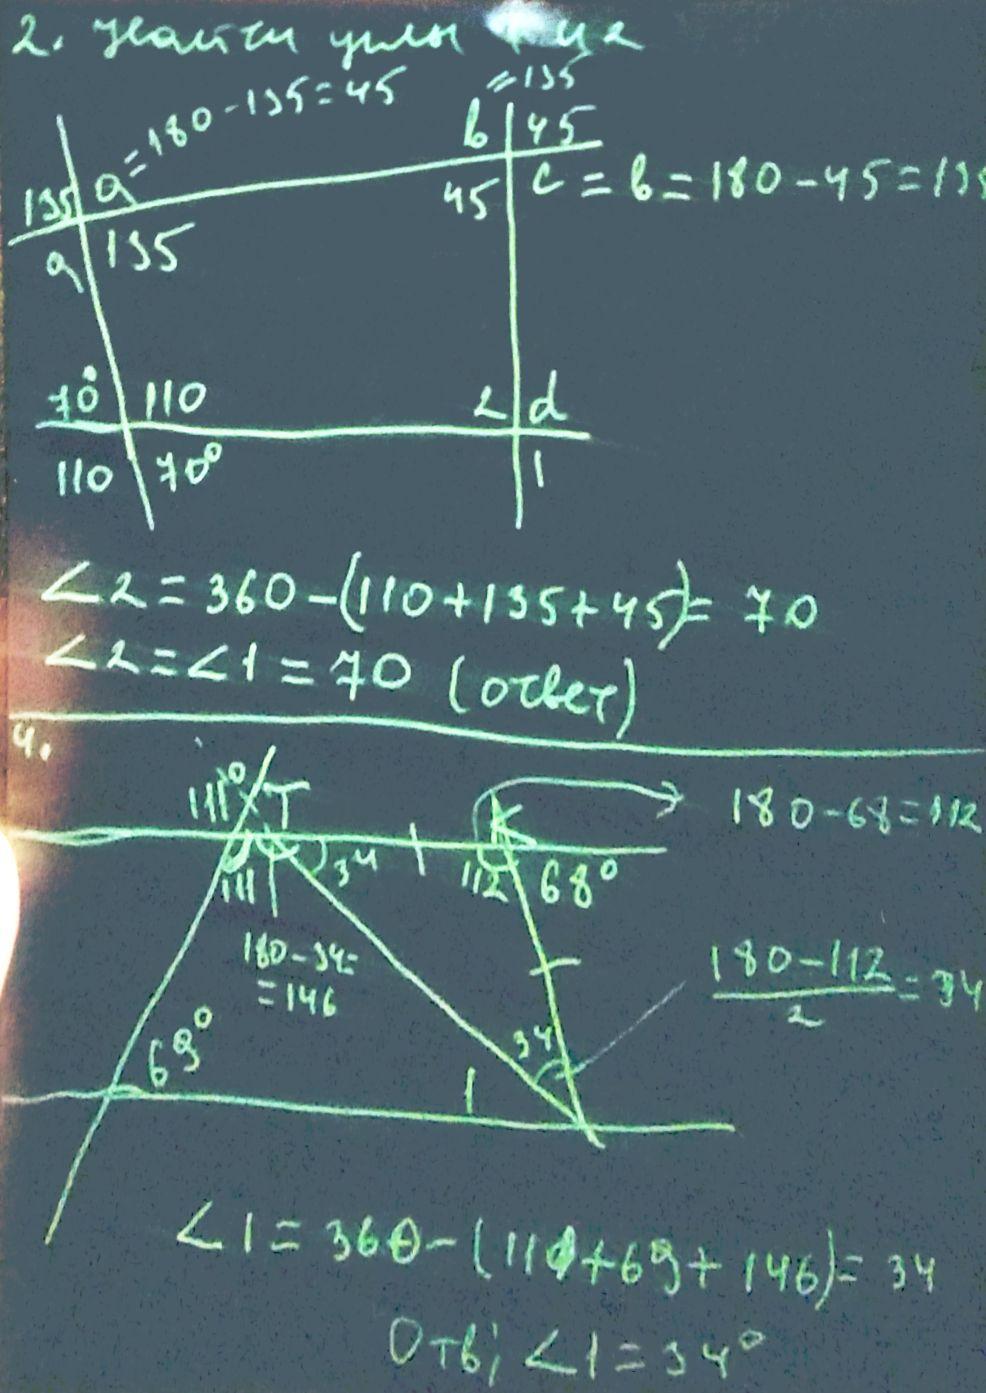 2. Найти углы 1 и 2
= 180 - 135 = 45
= 135
b 45
135 a
45 c = b = 180 - 45 = 135
a 135
70° 110
2 d
110 70°
1
∠2 = 360 - (110 + 135 + 45) = 70
∠2 = ∠1 = 70 (ответ)
4.
111° T
K
180 - 68 = 112
111 34 112 68°
180 - 34 =
= 146
180 - 112
2
= 34
69°
34
1
∠1 = 360 - (111 + 69 + 146) = 34
Отв; ∠1 = 34°